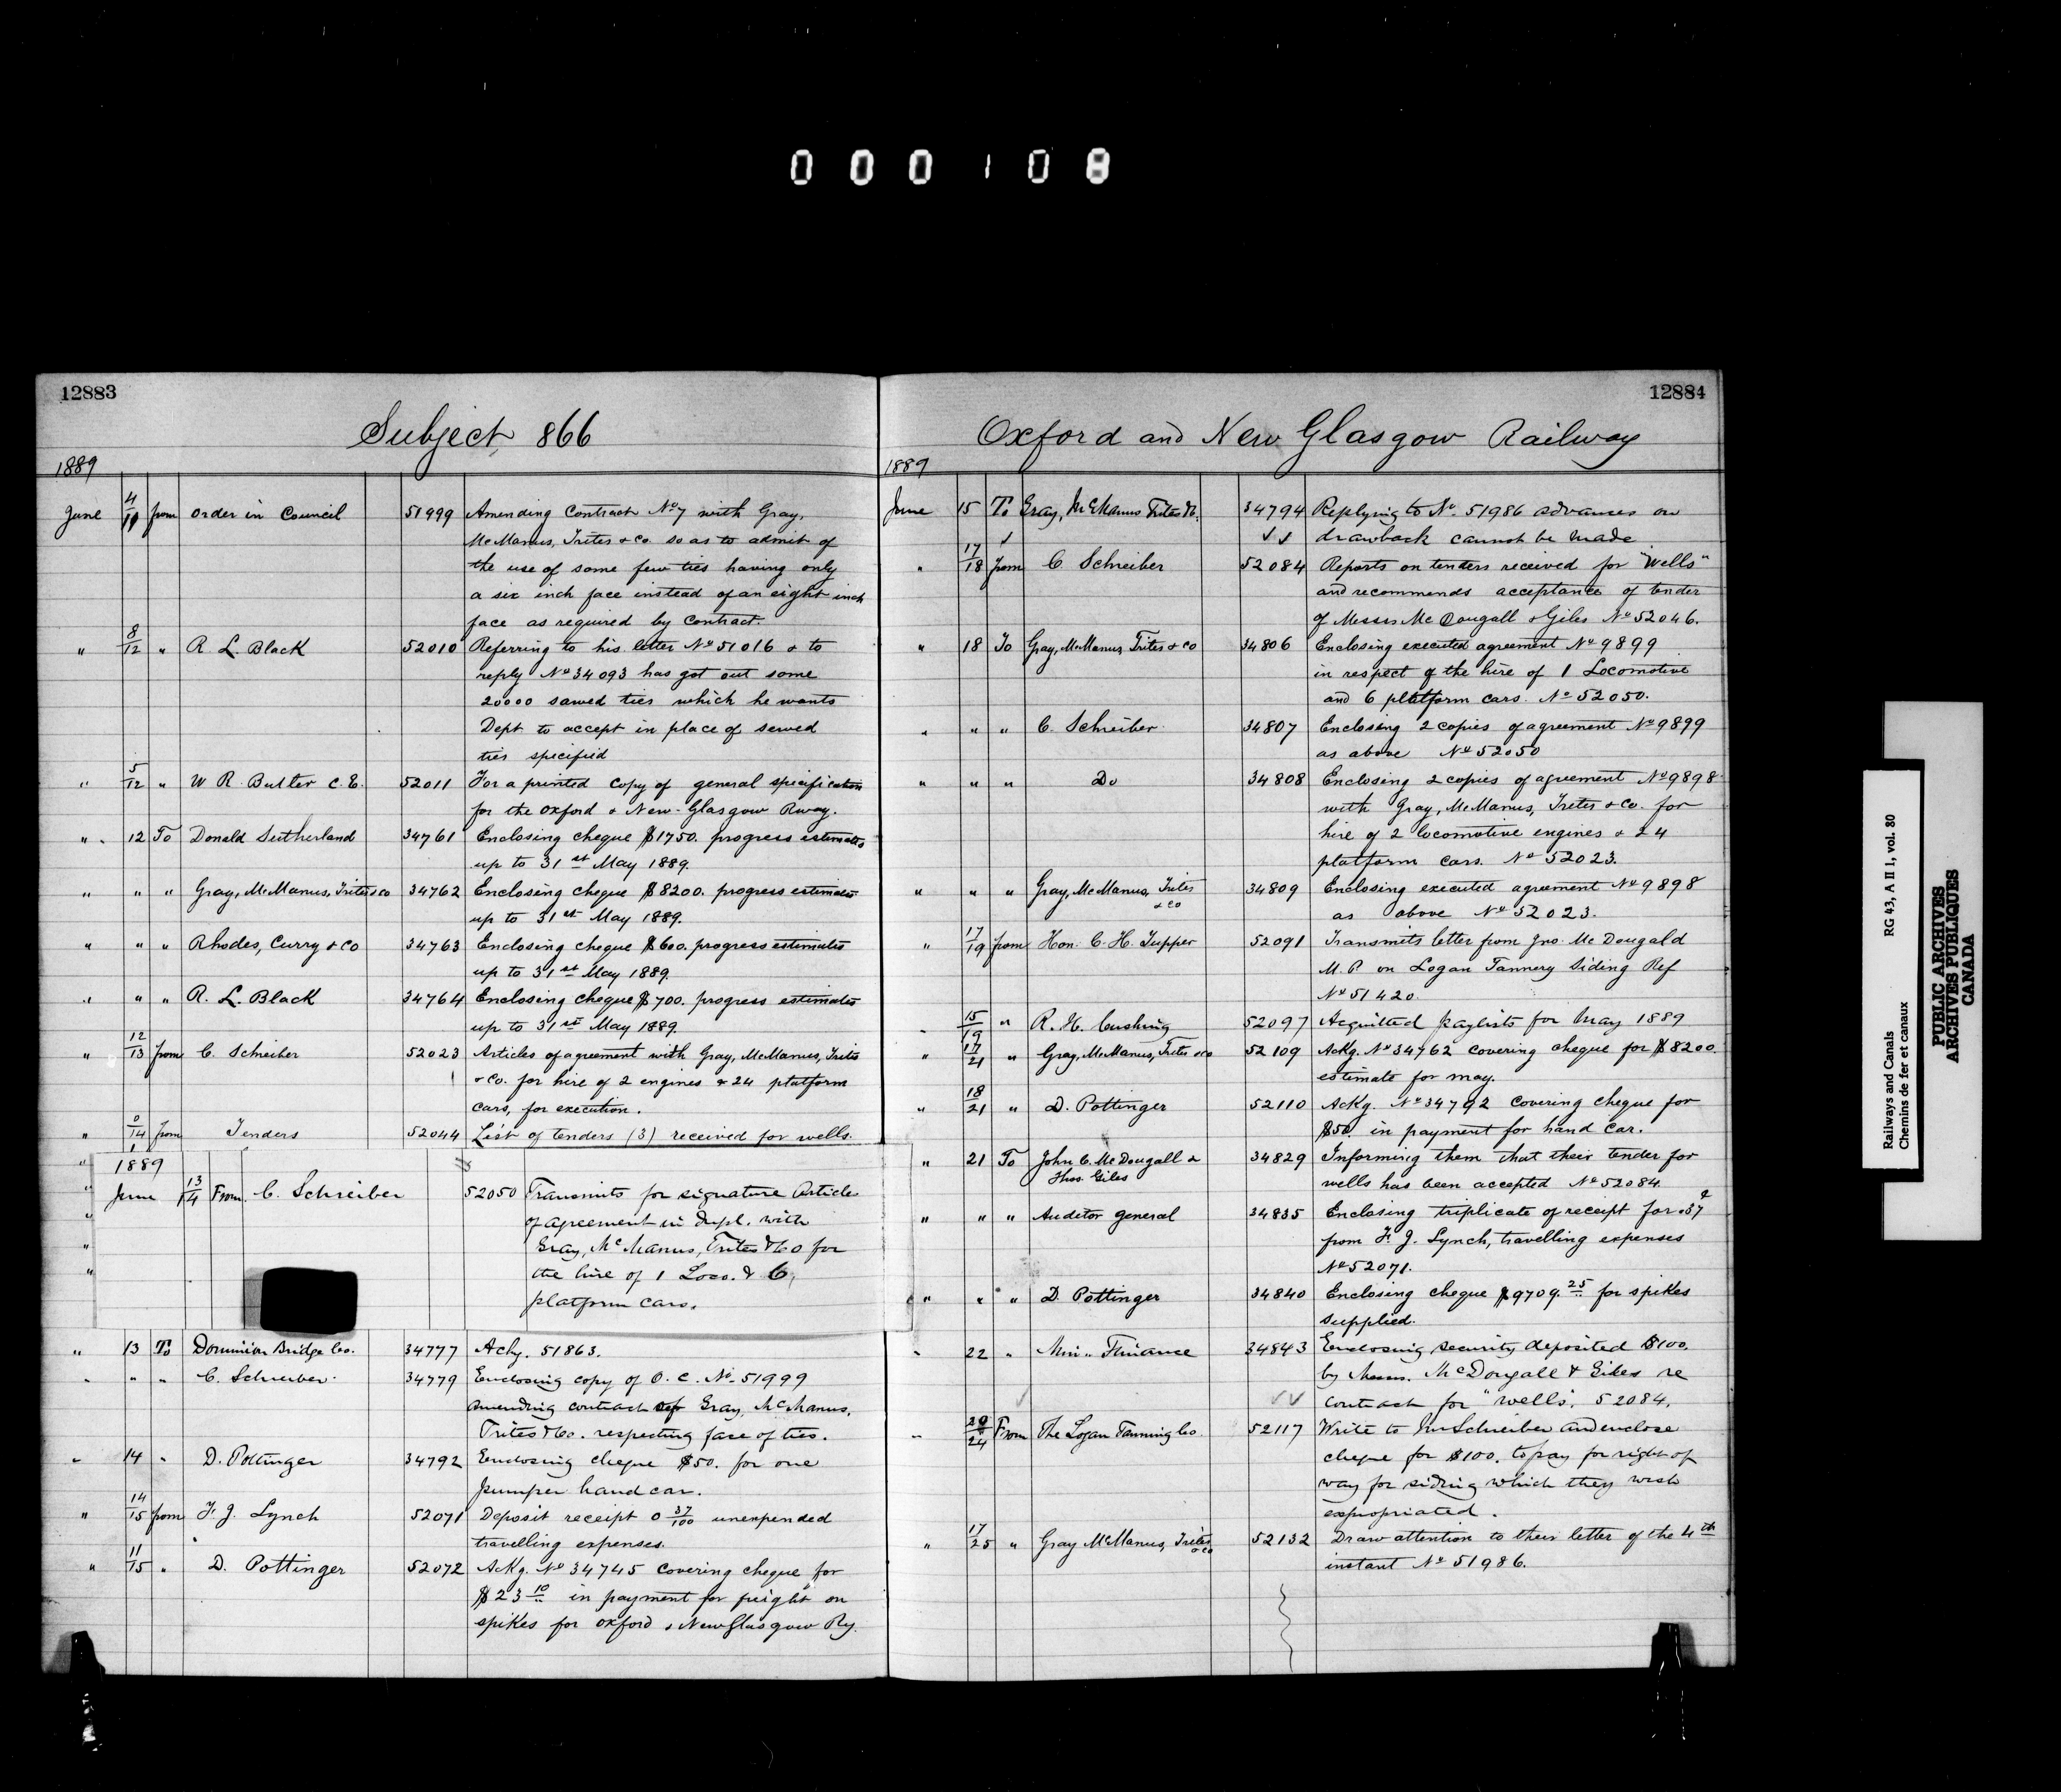 000108
12883
Subject 866
1889
June 4/11 from Order in Council 51999 Amending Contract No 7 with Gray,
McManus, Trites & Co. so as to admit of
the use of some few ties having only
a six inch face instead of an eight inch
face as required by contract.
" 8/12 " R. L. Black 52010 Referring to his letter No 51016 & to
reply No 34093 has got out some
20000 sawed ties which he wants
Dept to accept in place of sewed
ties specified
" 5/12 " W R. Butler C. E. 52011 For a printed copy of general specification
for the Oxford & New-Glasgow Rway.
" 12 To Donald Sutherland 34761 Enclosing cheque $1750. progress estimates
up to 31st May 1889.
" " " Gray, McManus, Trites & Co 34762 Enclosing cheque $8200. progress estimates
up to 31st May 1889.
" " " Rhodes, Curry & Co 34763 Enclosing cheque $600. progress estimates
up to 31st May 1889.
" " " R. L. Black 34764 Enclosing cheque $700. progress estimates
up to 31st May 1889.
" 12/13 from C. Schreiber 52023 Articles of agreement with Gray, McManus, Trites
& Co. for hire of 2 engines & 24 platform
cars, for execution.
" 0/14 from Tenders 52044 List of tenders (3) received for wells.
1889
June 13/14 From C. Schreiber 52050 Transmits for signature Article
of agreement in dupl. with
Gray, McManus, Trites & Co for
the hire of 1 Loco. & 6
platform cars.
" 13 To Dominion Bridge Co. 34777 Ackg. 51863.
" " " C. Schreiber 34779 Enclosing copy of O. C. No 51999
amending contract Gray, McManus,
Trites & Co. respecting face of ties.
" 14 " D. Pottinger 34792 Enclosing cheque $50. for one
pumper hand car.
" 14/15 from F. J. Lynch 52071 Deposit receipt 0 37/100 unexpended
travelling expenses.
" 11/15 " D. Pottinger 52072 Ackg. No 34745 covering cheque for
$23 10 in payment for freight on
spikes for Oxford & New Glasgow Ry.
12884
Oxford and New Glasgow Railway
1889
June 15 To Gray, McManus Trites & Co. 34794 Replying to No. 51986 advances on
drawback cannot be made
" 17/18 from C Schreiber 52084 Reports on tenders received for "Wells"
and recommends acceptance of tender
of Messrs McDougall & Giles No 52046.
" 18 To Gray, McManus, Trites & Co 34806 Enclosing executed agreement No 9899
in respect of the hire of 1 Locomotive
and 6 platform cars. No 52050.
" " " C. Schreiber 34807 Enclosing 2 copies of agreement No 9899
as above No 52050
" " " Do 34808 Enclosing 2 copies of agreement No 9898
with Gray, McManus, Trites & Co. for
hire of 2 locomotive engines & 24
platform cars. No 52023.
" " " Gray, McManus, Trites & Co 34809 Enclosing executed agreement No 9898
as above No 52023.
" 17/19 from Hon. C. H. Tupper 52091 Transmits letter from Jno. McDougald
M. P. on Logan Tannery Siding Ref
No 51420.
" 15/19 " R. H. Cushing 52097 Acquitted paylists for May 1889
" 17/21 " Gray, McManus, Trites & Co 52109 Ackg. No 34762 covering cheque for $8200.
estimate for may.
" 18/21 " D. Pottinger 52110 Ackg. No 34792 covering cheque for
$50. in payment for hand car.
" 21 To John C. McDougall & 34829 Informing them that their tender for
Thos. Giles wells has been accepted No 52084
" " " Auditor General 34835 Enclosing triplicate of receipt for .37¢
from F. J. Lynch, travelling expenses
No 52071.
" " " D. Pottinger 34840 Enclosing cheque $9709.25 for spikes
supplied.
" 22 " Min. Finance 34843 Enclosing security deposited $100.
by Messrs. McDougall & Giles re
contract for "wells". 52084.
" 20/24 From The Logan Tanning Co 52117 Write to Mr Schreiber and enclose
cheque for $100. to pay for right of
way for siding which they wish
expropriated.
" 17/25 " Gray McManus, Trites & Co 52132 Draw attention to their letter of the 4th
instant No 51986.
Railways and Canals RG 43, A II 1, vol. 80
Chemins de fer et canaux
PUBLIC ARCHIVES
ARCHIVES PUBLIQUES
CANADA